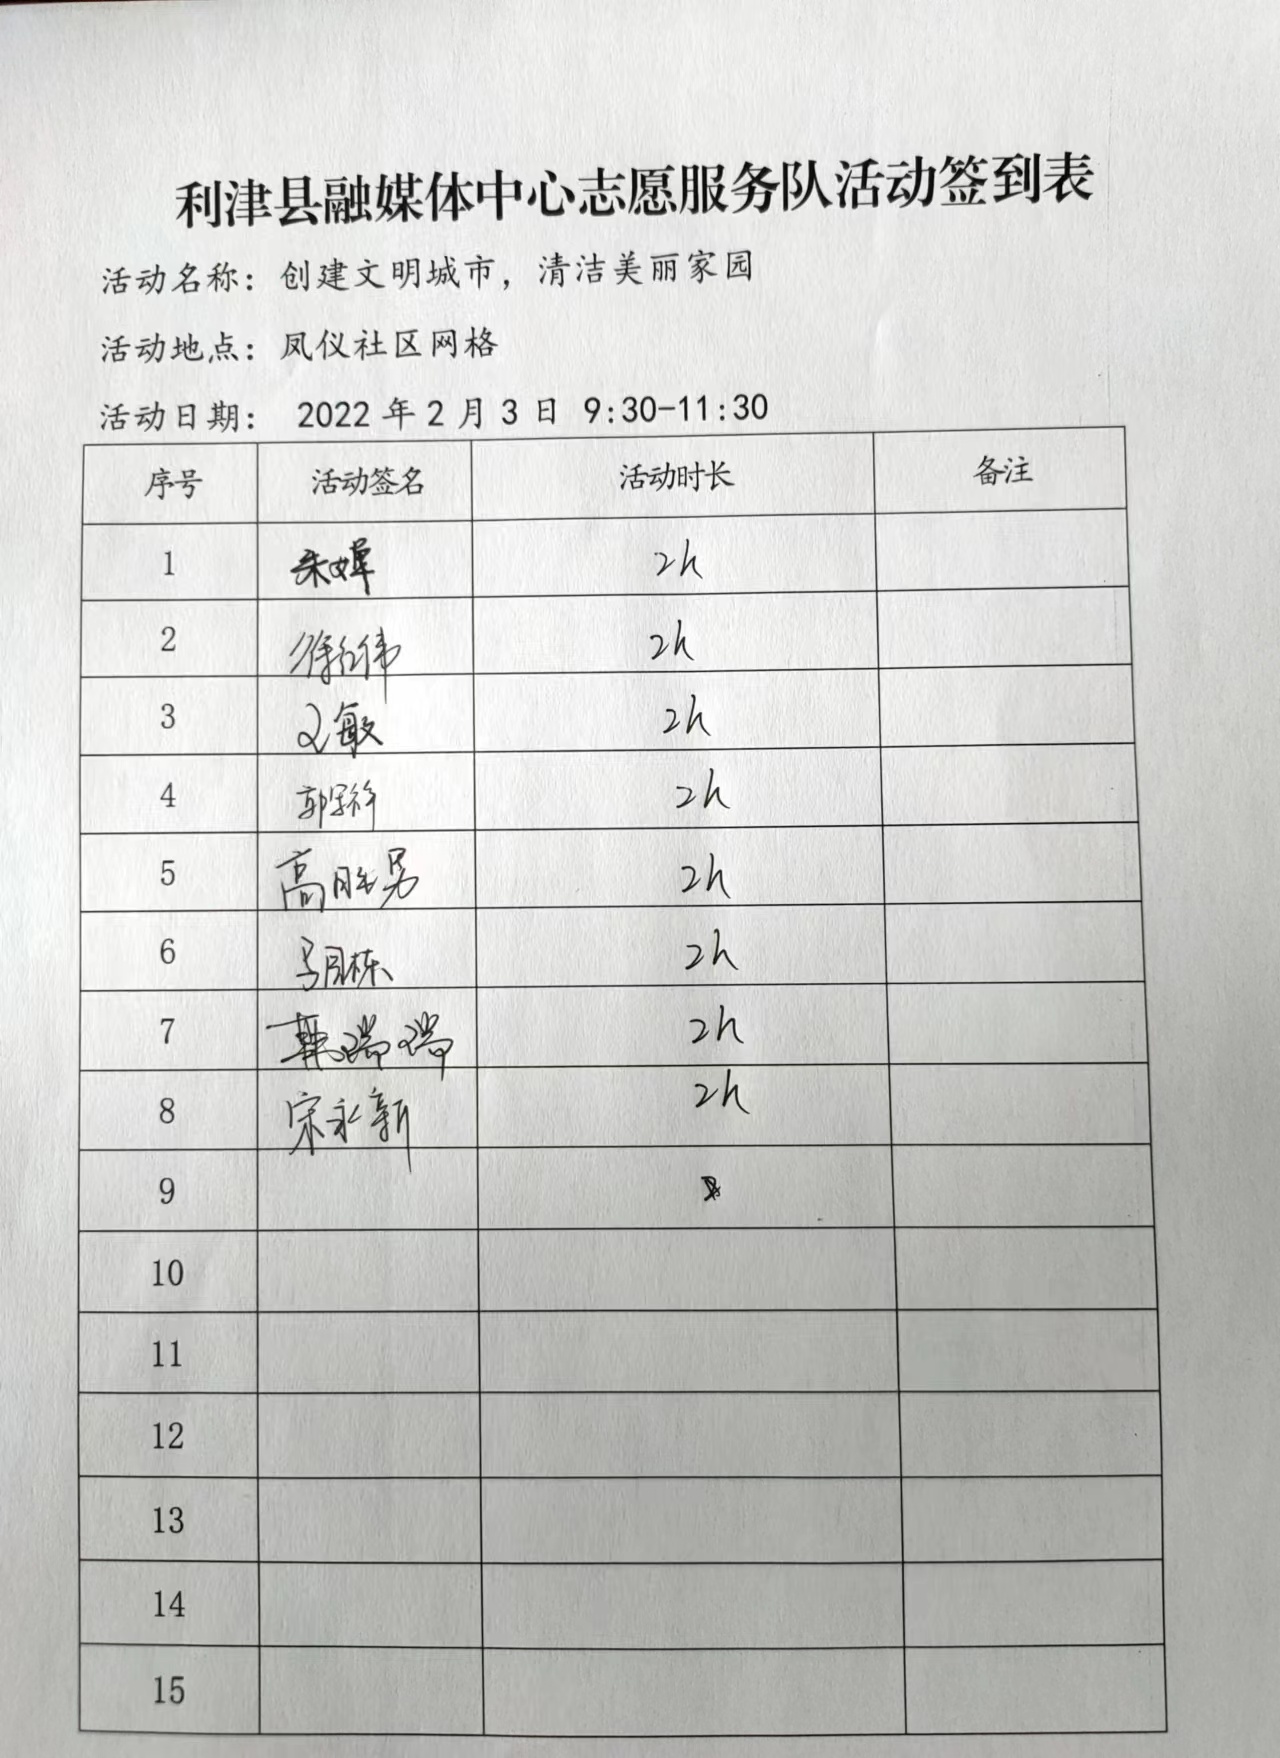 利津县融媒体中心志愿服务队活动签到表
活动名称：创建文明城市，清洁美丽家园
活动地点：凤仪社区网格
活动日期： 2022 年 2 月 3 日 9:30-11:30
序号 活动签名 活动时长 备注
1 2h
2 2h
3 2h
4 2h
5 高胜男 2h
6 2h
7 瑞瑞 2h
8 宋永新 2h
9
10
11
12
13
14
15